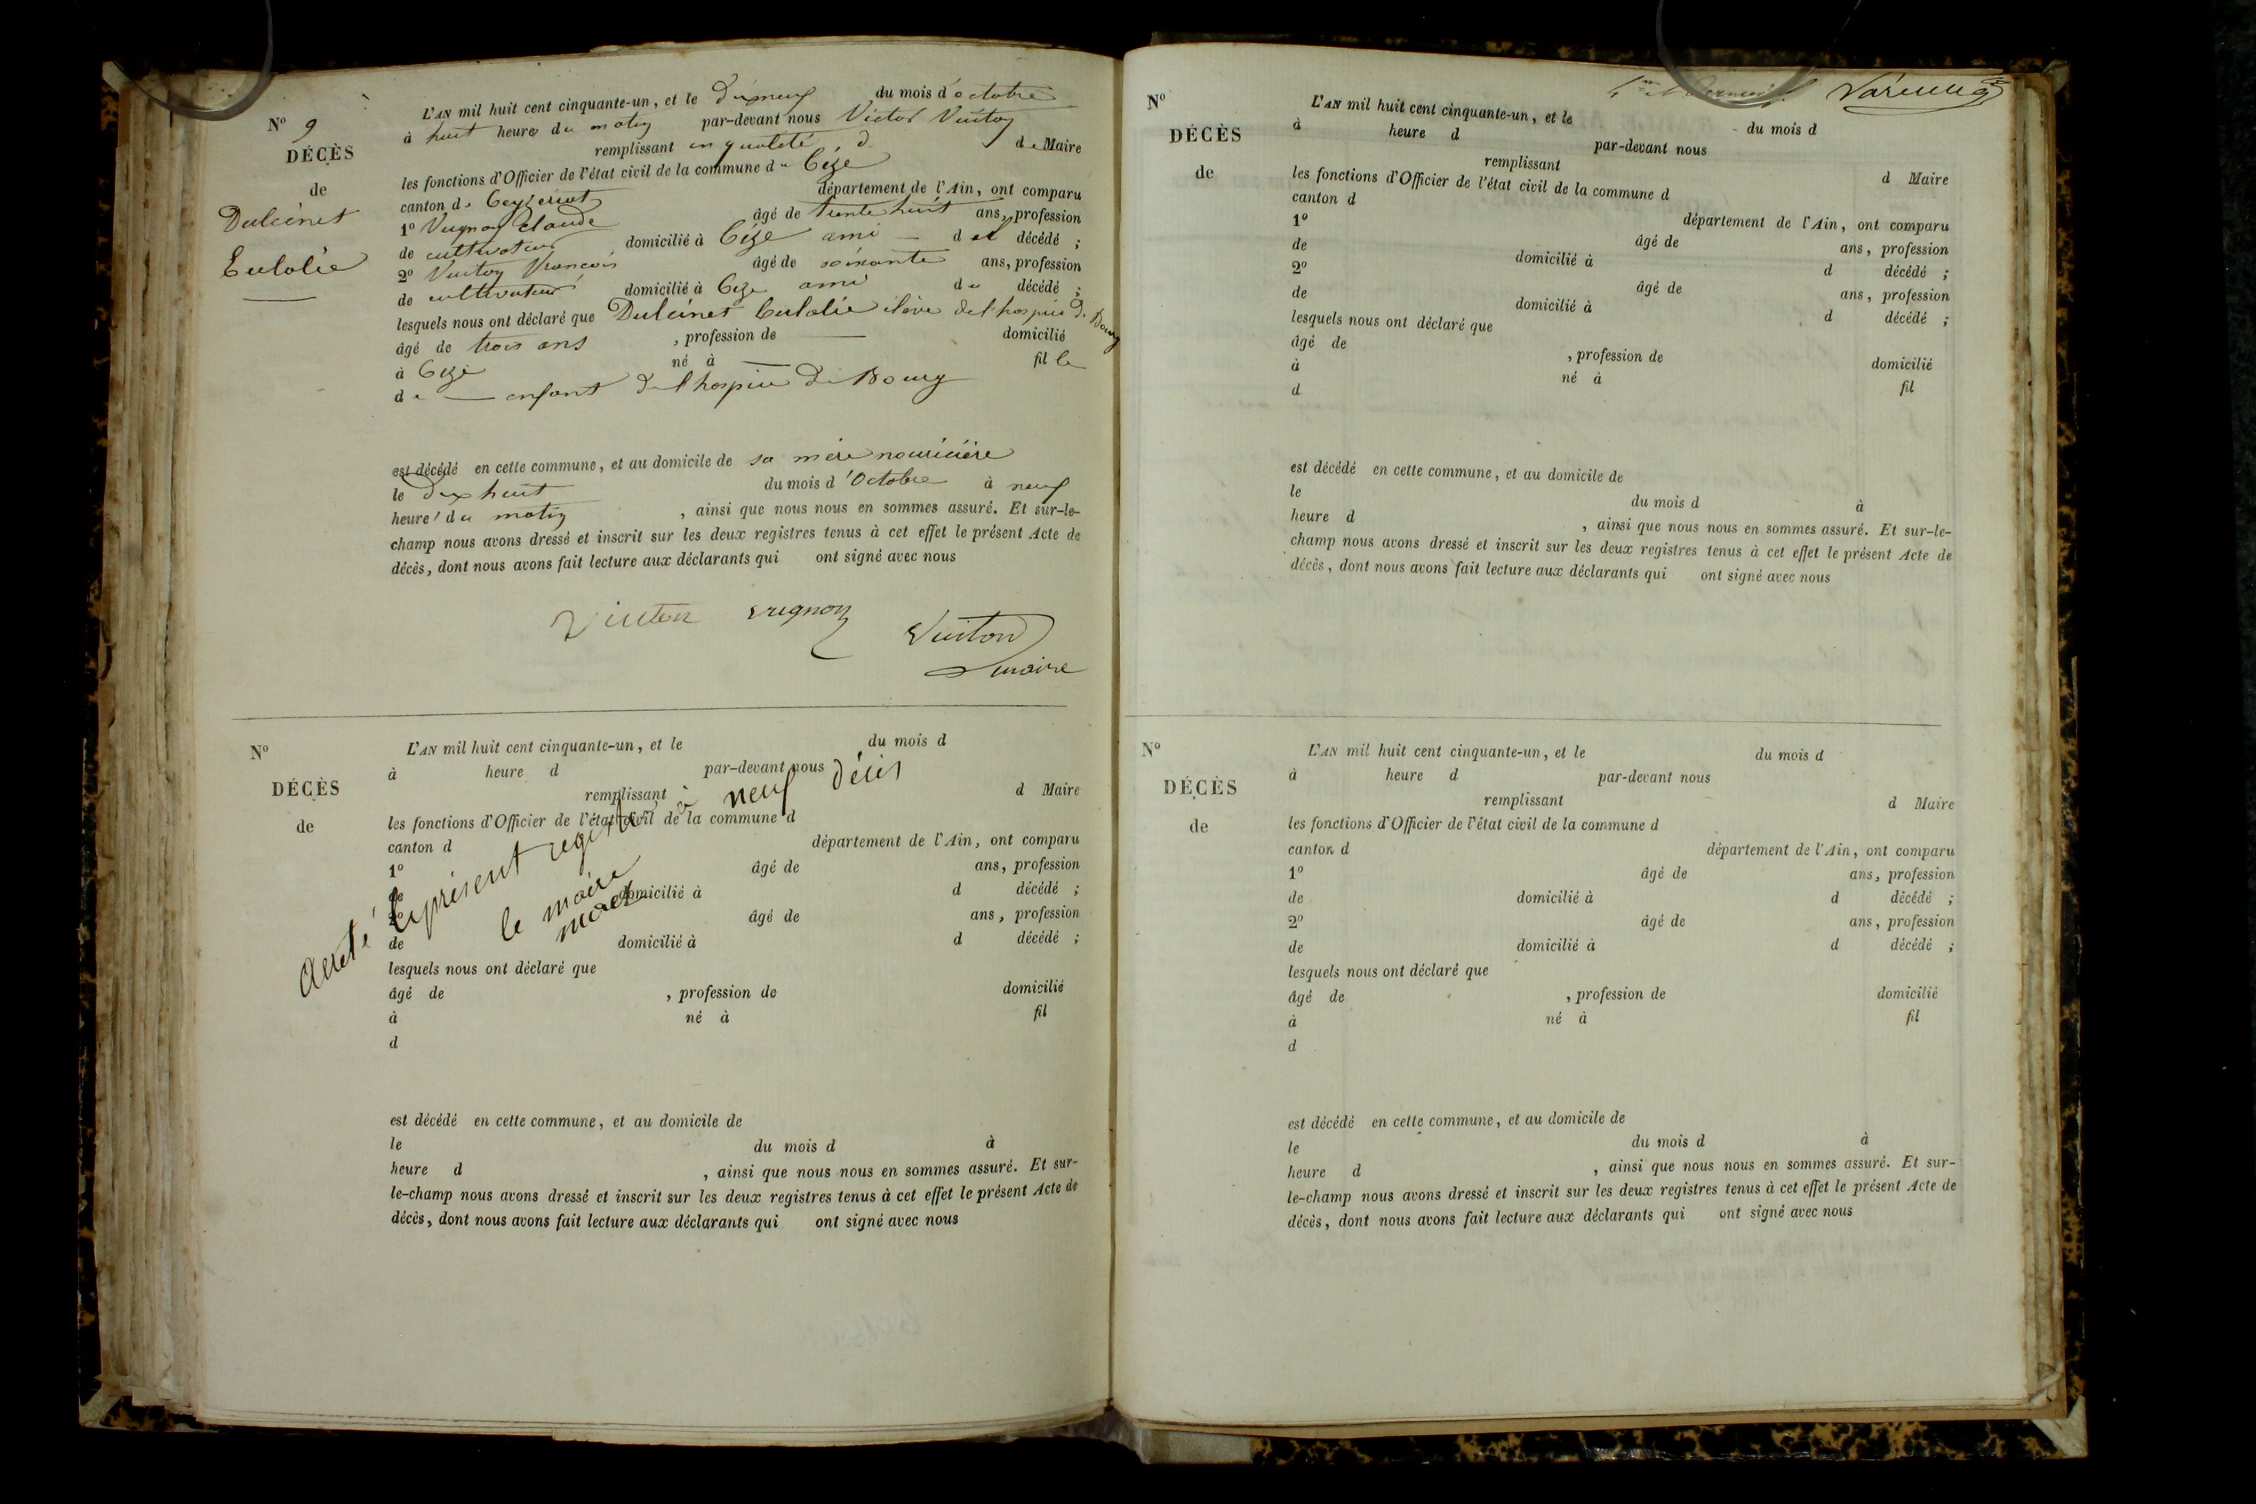 Nº 9
DÉCÈS
de
Dulcinet
Eulalie
L'AN mil huit cent cinquante-un, et le dixneuf du mois d'octobre
à huit heures du matin par-devant nous Victor Vuiton
remplissant en qualité d de Maire
les fonctions d'Officier de l'état civil de la commune de Cize
canton de Ceyzeriat département de l'Ain, ont comparu
1º Vugnon Claude âgé de trente huit ans, profession
de cultivateur domicilié à Cize ami d el décédé ;
2º Vuiton François âgé de soixante ans, profession
de cultivateur domicilié à Cize ami du décédé ;
lesquels nous ont déclaré que Dulcinet Eulalie élève de l'hospice de Bourg
âgé de trois ans , profession de — domicilié
à Cize né à — fille
de — enfant de l'hospice de Bourg
est décédé en cette commune, et au domicile de sa mère nouricière
le dix huit du mois d'Octobre à neuf
heure du matin , ainsi que nous nous en sommes assuré. Et sur-le-
champ nous avons dressé et inscrit sur les deux registres tenus à cet effet le présent Acte de
décès, dont nous avons fait lecture aux déclarants qui ont signé avec nous
Vuiton vugnon Vuiton
maire
Nº
DÉCÈS
de
L'AN mil huit cent cinquante-un, et le du mois d
à heure d par-devant nous
remplissant d Maire
les fonctions d'Officier de l'état civil de la commune d
canton d département de l'Ain, ont comparu
1º âgé de ans, profession
de domicilié à d décédé ;
2º âgé de ans, profession
de domicilié à d décédé ;
lesquels nous ont déclaré que
âgé de , profession de domicilié
à né à fil
d
est décédé en cette commune, et au domicile de
le du mois d à
heure d , ainsi que nous nous en sommes assuré. Et sur-
le-champ nous avons dressé et inscrit sur les deux registres tenus à cet effet le présent Acte de
décès, dont nous avons fait lecture aux déclarants qui ont signé avec nous
arreté le présent registre à neuf décès
le maire
Nº
DÉCÈS
de
L'AN mil huit cent cinquante-un, et le du mois d
à heure d par-devant nous
remplissant d Maire
les fonctions d'Officier de l'état civil de la commune d
canton d département de l'Ain, ont comparu
1º âgé de ans, profession
de domicilié à d décédé ;
2º âgé de ans, profession
de domicilié à d décédé ;
lesquels nous ont déclaré que
âgé de , profession de domicilié
à né à fil
d
est décédé en cette commune, et au domicile de
le du mois d à
heure d , ainsi que nous nous en sommes assuré. Et sur-le-
champ nous avons dressé et inscrit sur les deux registres tenus à cet effet le présent Acte de
décès, dont nous avons fait lecture aux déclarants qui ont signé avec nous
Nº
DÉCÈS
de
L'AN mil huit cent cinquante-un, et le du mois d
à heure d par-devant nous
remplissant d Maire
les fonctions d'Officier de l'état civil de la commune d
canton d département de l'Ain, ont comparu
1º âgé de ans, profession
de domicilié à d décédé ;
2º âgé de ans, profession
de domicilié à d décédé ;
lesquels nous ont déclaré que
âgé de , profession de domicilié
à né à fil
d
est décédé en cette commune, et au domicile de
le du mois d à
heure d , ainsi que nous nous en sommes assuré. Et sur-
le-champ nous avons dressé et inscrit sur les deux registres tenus à cet effet le présent Acte de
décès, dont nous avons fait lecture aux déclarants qui ont signé avec nous